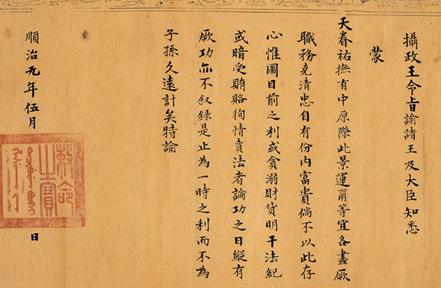 攝政王令旨諭諸王及大臣知悉
蒙
天眷祐撫有中原際此景運爾等宜各盡厥
職務克清忠自有份內富貴倘不以此存
心惟圖目前之利或貪溺財貨明干法紀
或暗受賄賂徇情賣法者論功之日縱有
厥功亦不叙錄是止為一時之利而不為
子孫久遠計矣特諭
順治元年伍月 日